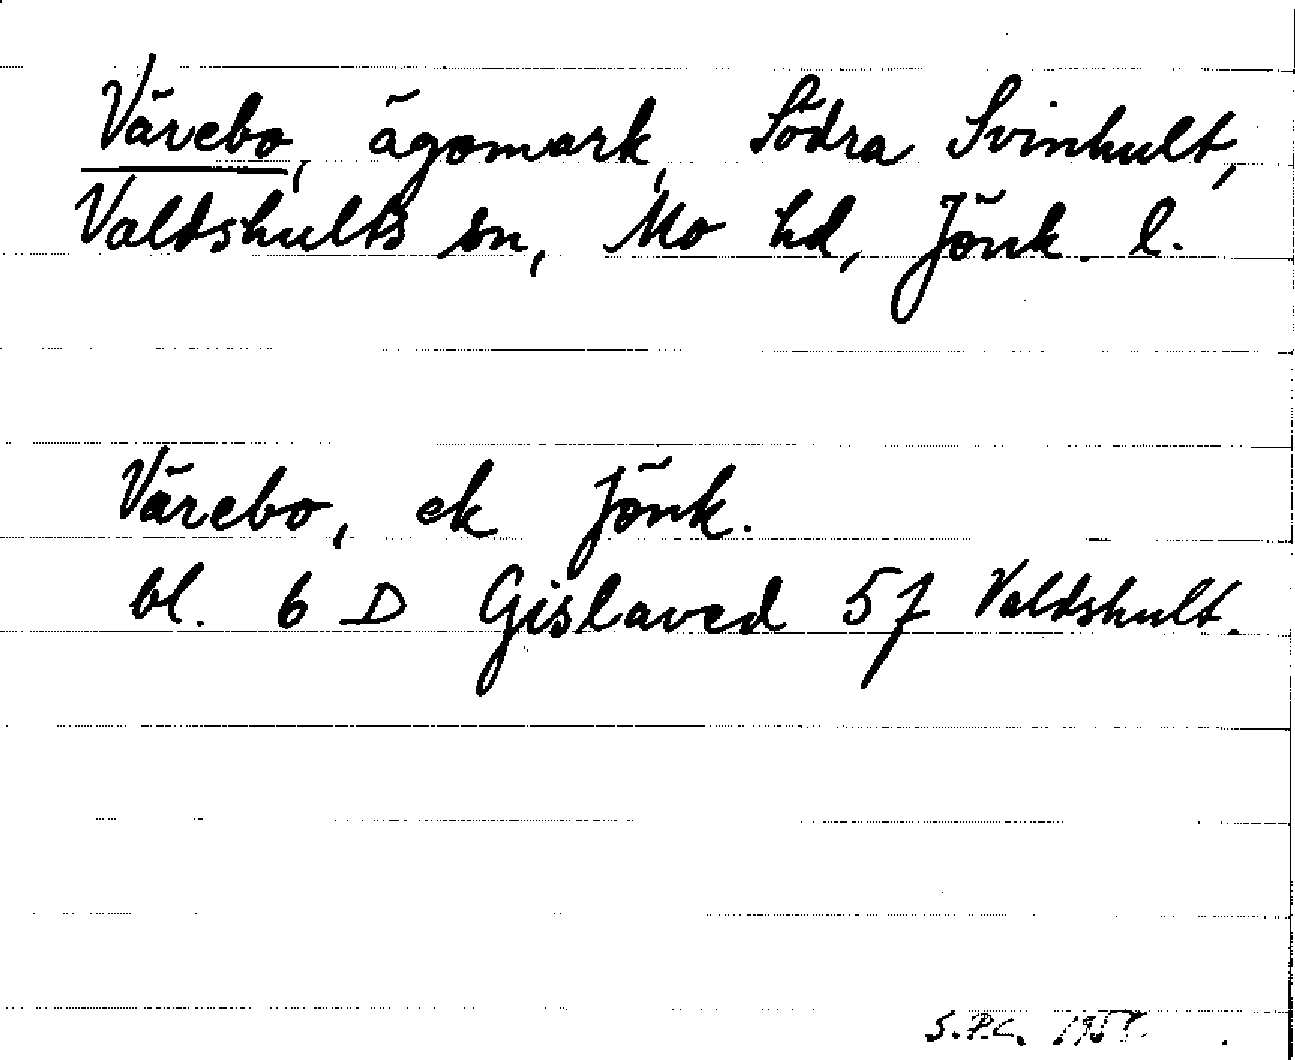 Värebo, ägomark, Södra Svinhult,
Valdshults sn, Mo hd, Jönk. l.
Värebo, ek Jönk.
bl. 6 D Gislaved 5f Valdshult.
S.P.C.